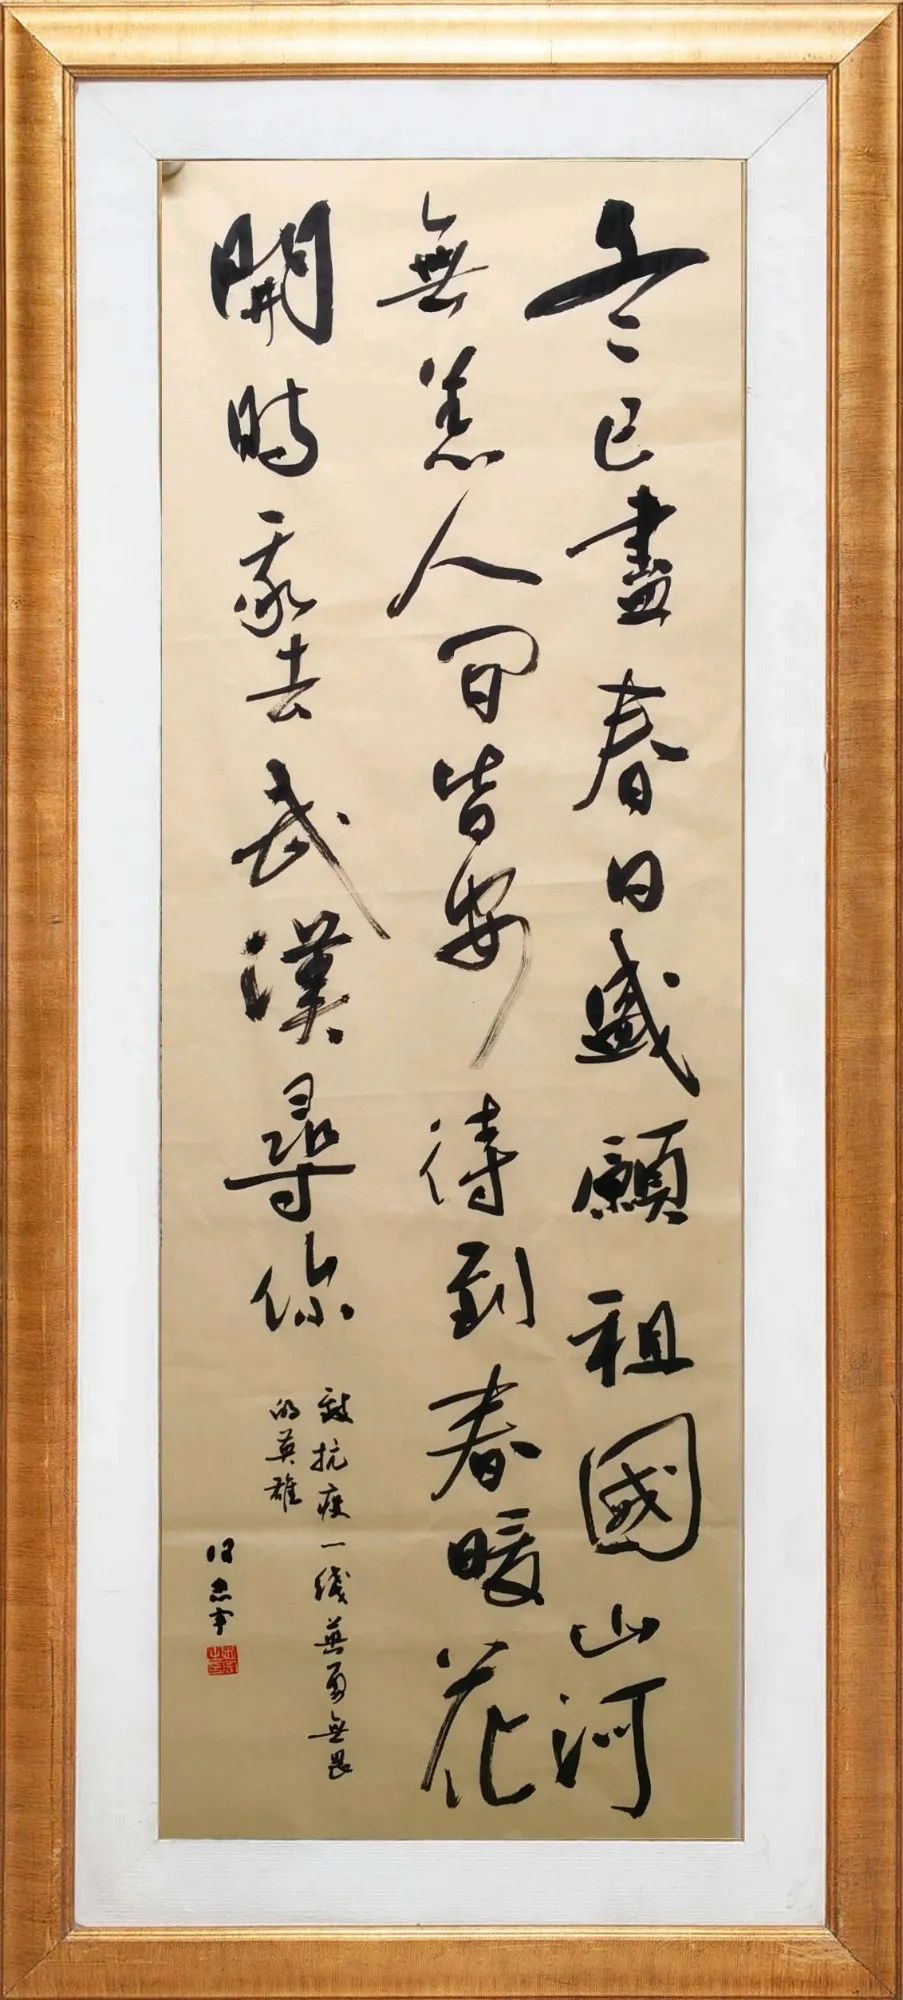 冬已盡春日盛願祖國山河
無恙人间皆安待到春暖花
開時我去武漢尋你
致抗疫一线英勇無畏
的英雄